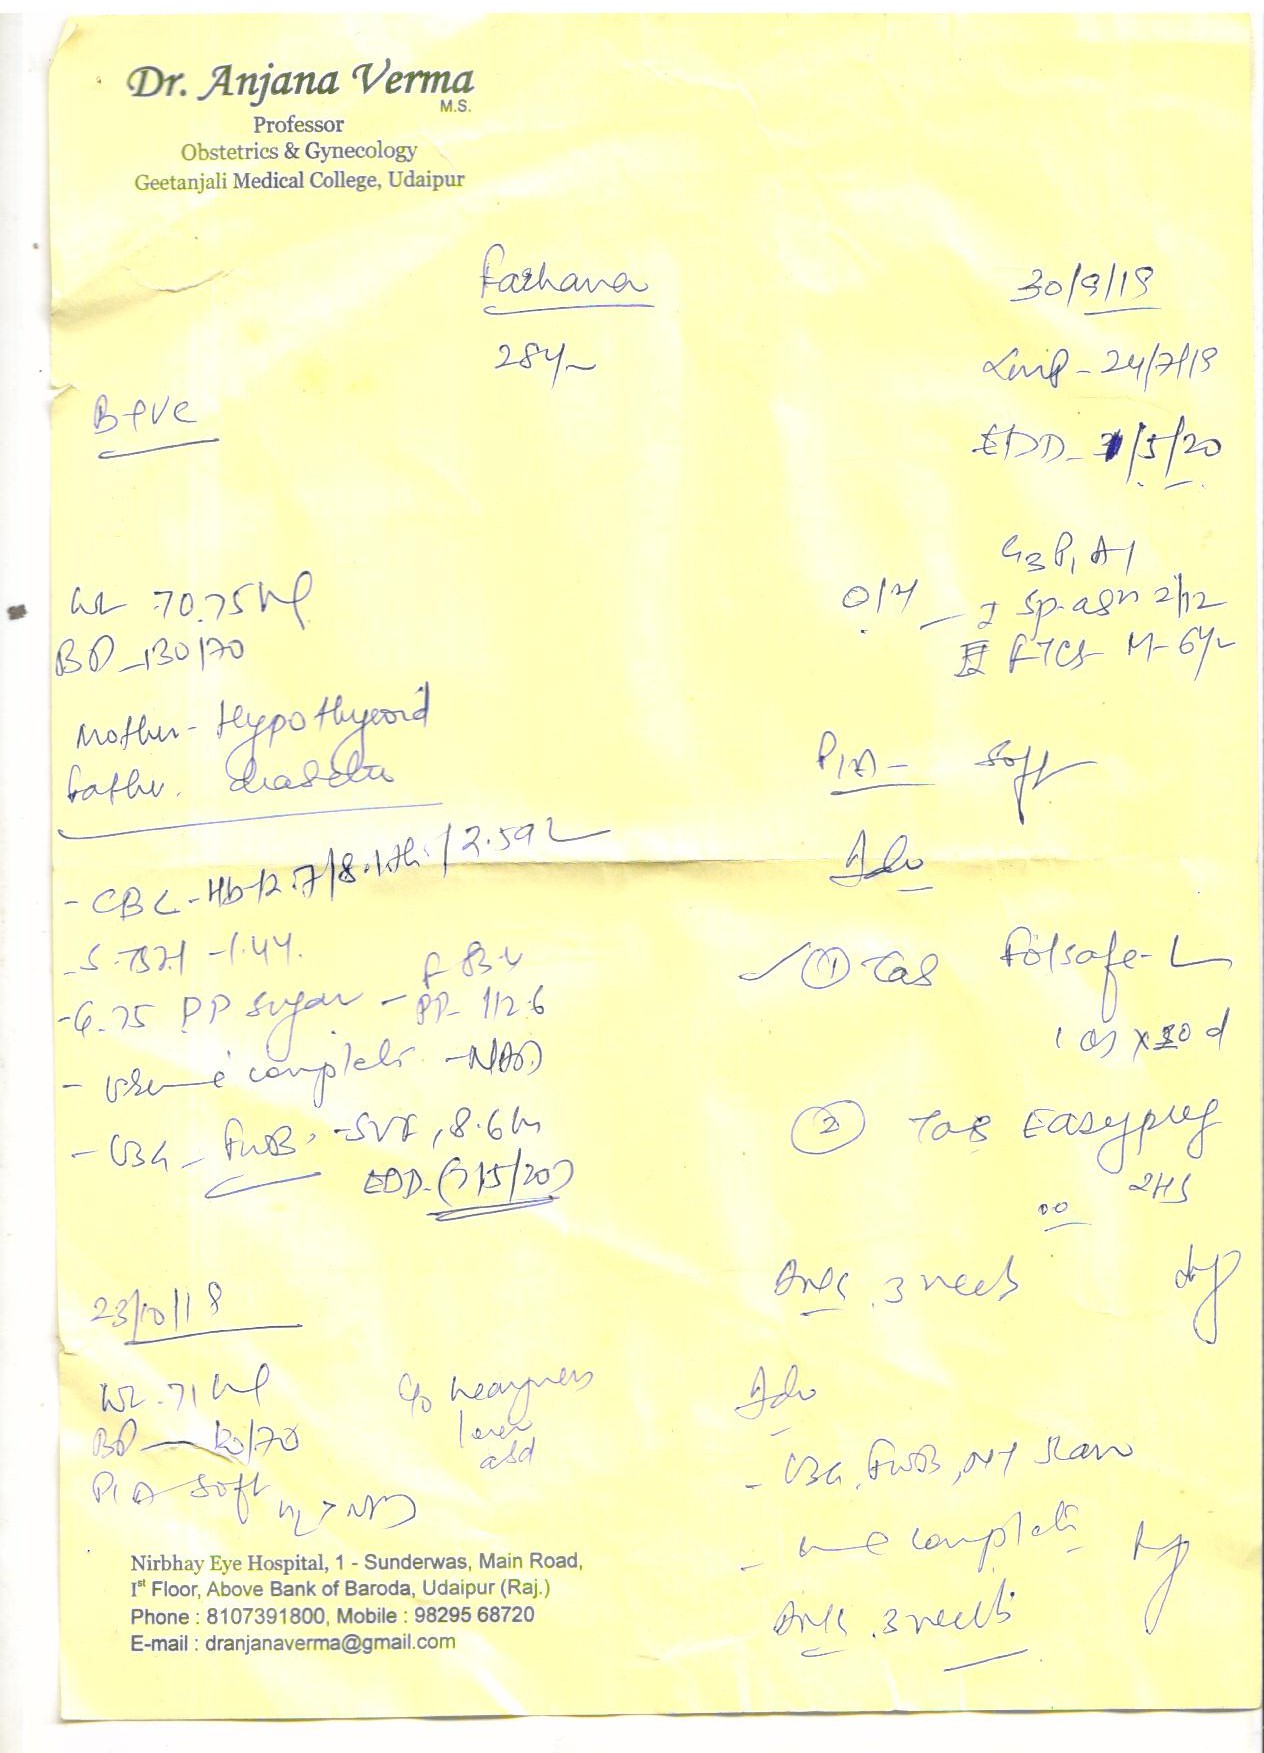 Dr. Anjana Verma
M.S.
Professor
Obstetrics & Gynecology
Geetanjali Medical College, Udaipur
Farhana
30/9/19
28y/
LMP - 24/7/19
B +ve
EDD - 1/5/20
G3 P1 A1
Wt 70.75 kg
O/H - I sp. abn 2/12
BP - 130/70
II FTCS M - 6y
Mother - Hypothyroid
P/A - soft
Father.
Adv
- CBC - Hb 12.7/8.1th/2.59L
- S. TSH - 1.44.
① Tab Folsafe-L
F 83.4
- G. 75 PP sugar - PP - 112.6
1 OD x 30 d
- Urine complete - NAD
② Tab Easypreg
- USG - FWB, - SVF, 8.6
EDD - ( /5/20)
2HS
3 weeks
23/10/19
Wt. 71 kg
c/o heaviness
Adv
BP - 120/70
lower
abd
- USG, FWB, NT Scan
P/A soft
- complete
3 weeks
Nirbhay Eye Hospital, 1 - Sunderwas, Main Road,
Ist Floor, Above Bank of Baroda, Udaipur (Raj.)
Phone : 8107391800, Mobile : 98295 68720
E-mail : dranjanaverma@gmail.com